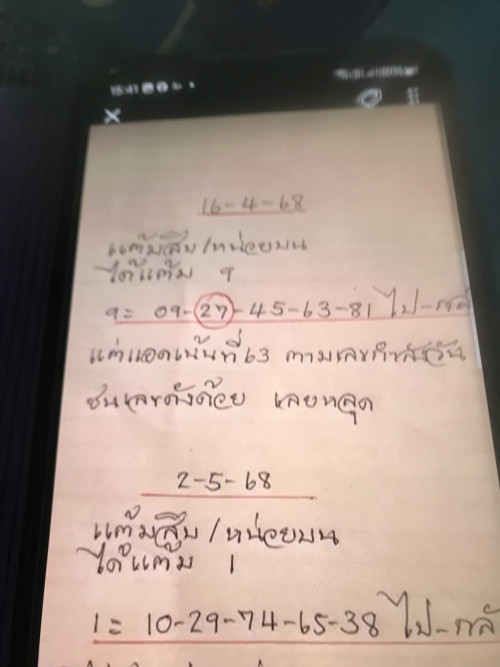 16-4-68
แต้มสิบ/หน่อยบน
ได้แต้ม 9
9= 09-27-45-63-81 ไป-กลั
แค่แอดเน้นที่ 63 ตามเลขกำลังวัน
ชนเลขดังด้วย เลยหลุด
2-5-68
แต้มสิบ/หน่อยบน
ได้แต้ม 1
1= 10-29-74-65-38 ไป-กลั